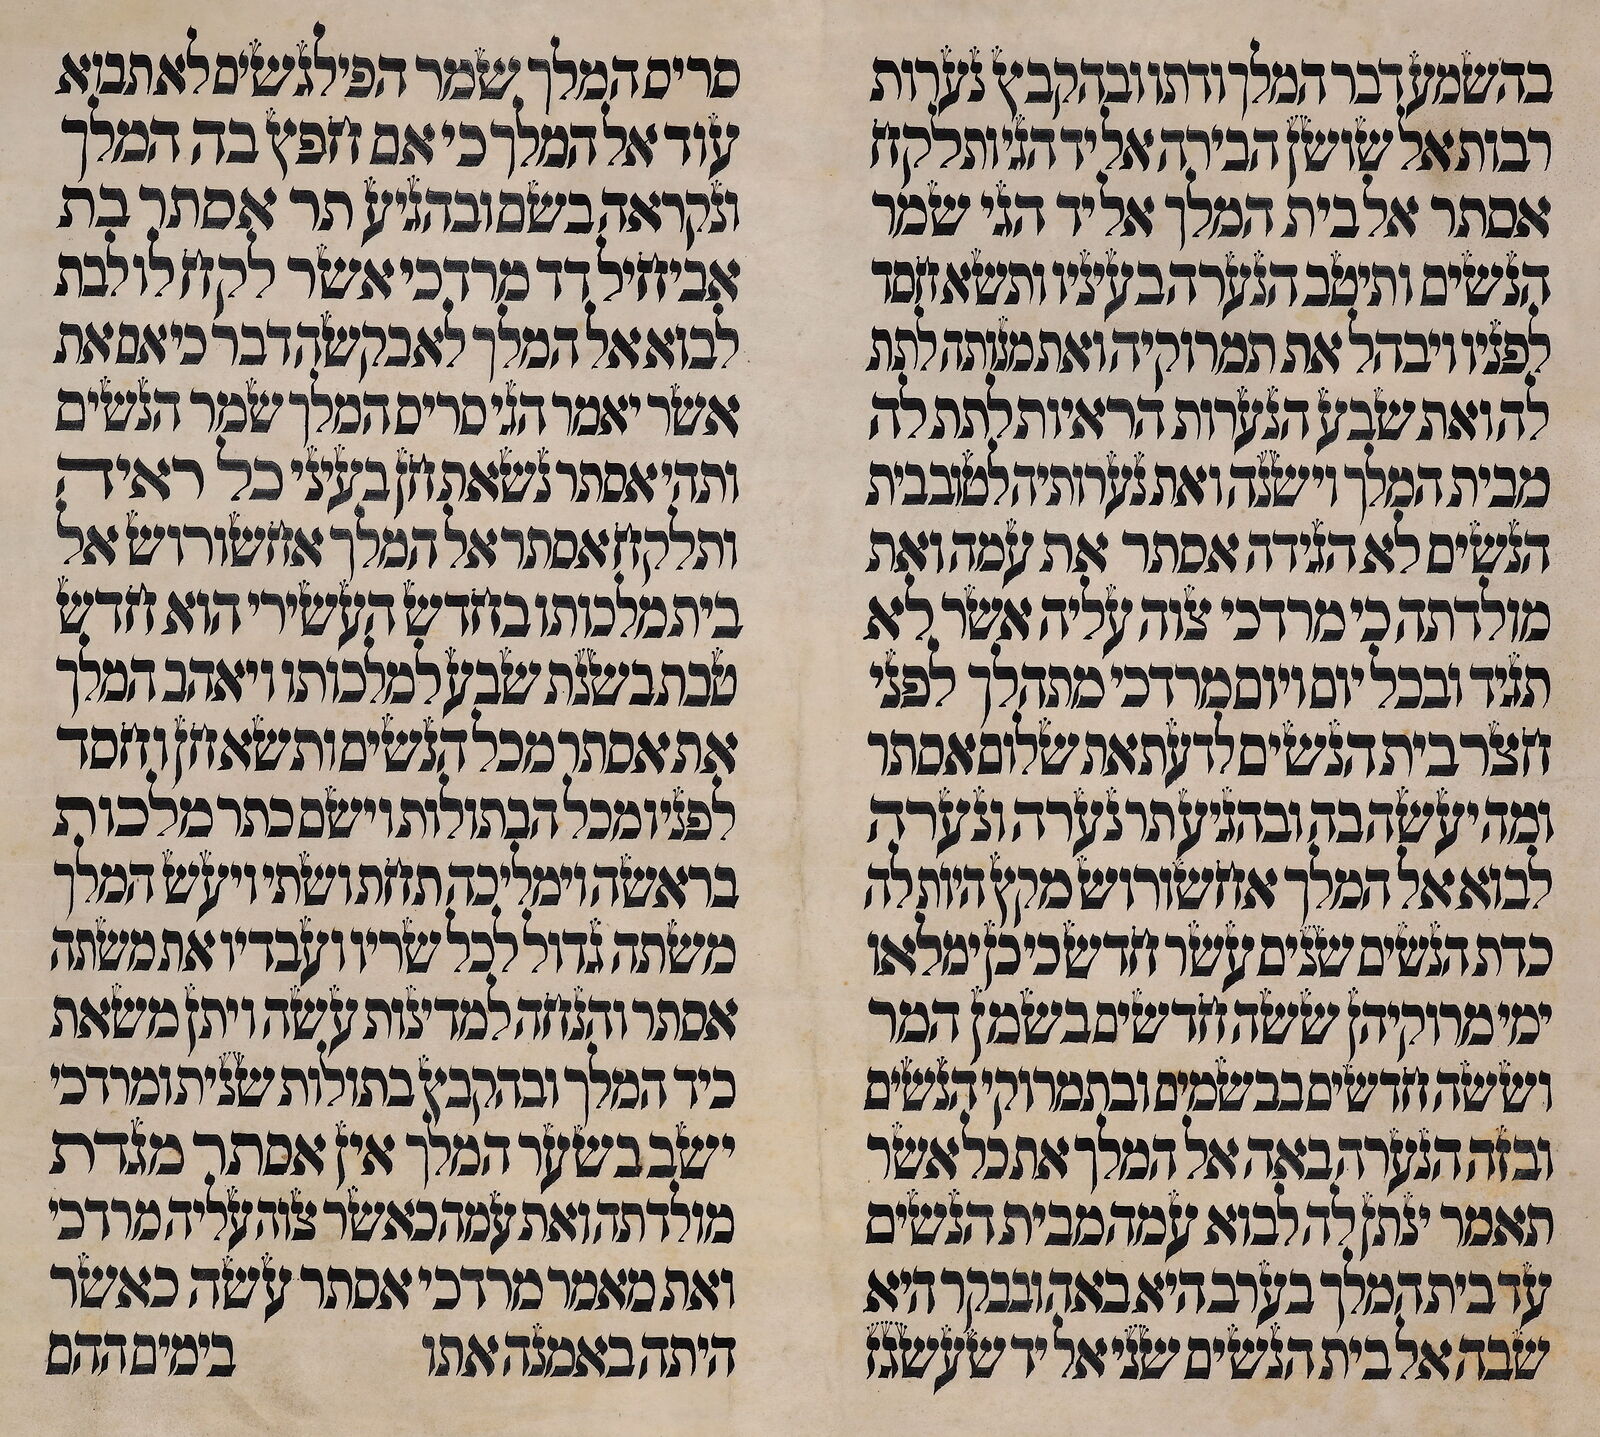 בהשמע דבר המלך ודתו ובהקבץ נערות
רבות אל שושן הבירה אל יד הגי ותלקח
אסתר אל בית המלך אל יד הגי שמר
הנשים ותיטב הנערה בעיניו ותשא חסד
לפניו ויבהל את תמרוקיה ואת מנותה לתת
לה ואת שבע הנערות הראיות לתת לה
מבית המלך וישנה ואת נערותיה לטוב בית
הנשים לא הגידה אסתר את עמה ואת
מולדתה כי מרדכי צוה עליה אשר לא
תגיד ובכל יום ויום מרדכי מתהלך לפני
חצר בית הנשים לדעת את שלום אסתר
ומה יעשה בה ובהגיע תר נערה ונערה
לבוא אל המלך אחשורוש מקץ היות לה
כדת הנשים שנים עשר חדש כי כן ימלאו
ימי מרוקיהן ששה חדשים בשמן המר
וששה חדשים בבשמים ובתמרוקי הנשים
ובזה הנערה באה אל המלך את כל אשר
תאמר ינתן לה לבוא עמה מבית הנשים
עד בית המלך בערב היא באה ובבקר היא
שבה אל בית הנשים שני אל יד שעשגז
סריס המלך שמר הפילגשים לא תבוא
עוד אל המלך כי אם חפץ בה המלך
ונקראה בשם ובהגיע תר אסתר בת
אביחיל דד מרדכי אשר לקח לו לבת
לבוא אל המלך לא בקשה דבר כי אם את
אשר יאמר הגי סריס המלך שמר הנשים
ותהי אסתר נשאת חן בעיני כל ראיה
ותלקח אסתר אל המלך אחשורוש אל
בית מלכותו בחדש העשירי הוא חדש
טבת בשנת שבע למלכותו ויאהב המלך
את אסתר מכל הנשים ותשא חן וחסד
לפניו מכל הבתולות וישם כתר מלכות
בראשה וימליכה תחת ושתי ויעש המלך
משתה גדול לכל שריו ועבדיו את משתה
אסתר והנחה למדינות עשה ויתן משאת
כיד המלך ובהקבץ בתולות שנית ומרדכי
ישב בשער המלך אין אסתר מגדת
מולדתה ואת עמה כאשר צוה עליה מרדכי
ואת מאמר מרדכי אסתר עשה כאשר
היתה באמנה אתו בימים ההם